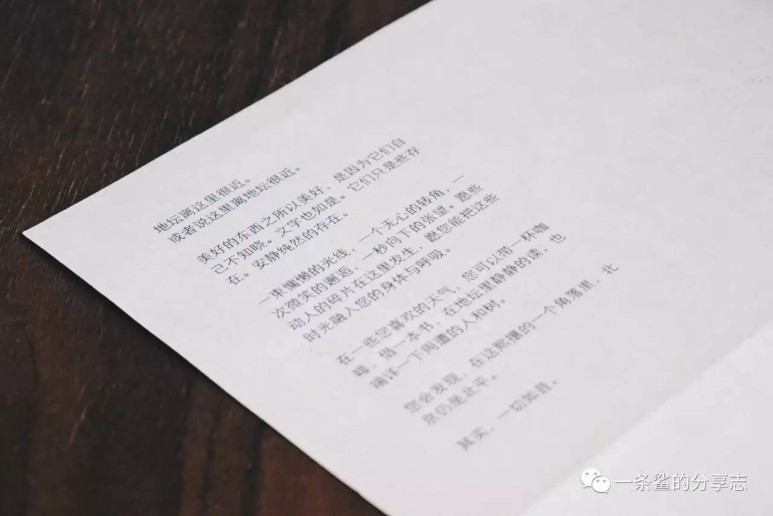 地坛离这里很近。
或者说这里离地坛很近。
美好的东西之所以美好，是因为它们自
己不知晓。文字也如是。它们只是些存
在。安静纯然的存在。
一束慵懒的光线，一个无心的转角，一
次微笑的邂逅，一秒向下的张望。愿些
动人的碎片在这里发生，愿您能把这些
时光融入您的身体与呼吸。
在一些您喜欢的天气，您可以带一杯咖
啡，借一本书，在地坛里静静的读，也
端详一下周遭的人和树。
您会发现，在这熙攘的一个角落里，北
京仍是北平。
其实，一切如昔。
一条鲨的分享志